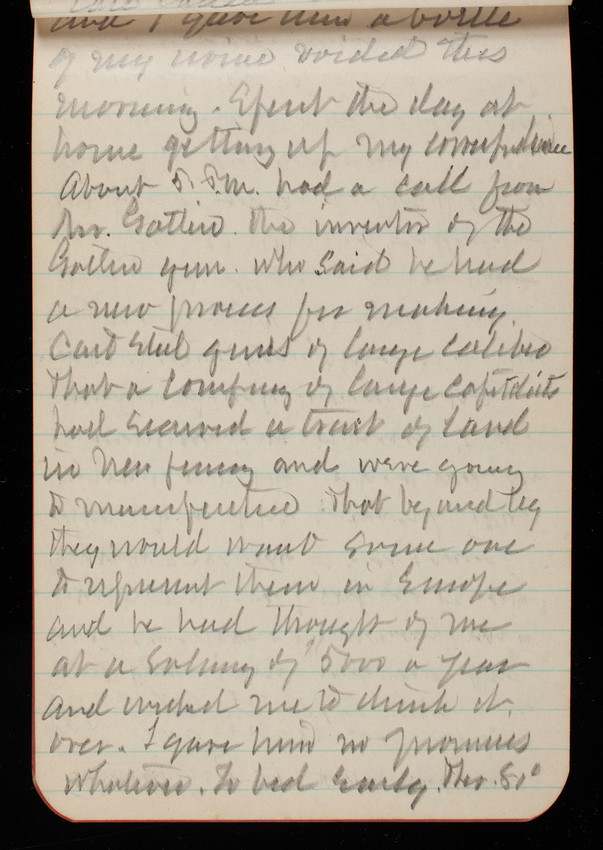 and I gave him a bottle
of my urine voided this
morning. Spent the day at
home getting up my correspondence
About 5 P.M. had a call from
Mr. Gatlin the inventor of the
Gatlin gun. who said he had
a new process for making
Cast Steel guns of large calibre
that a company of large capitalists
had secured a tract of land
in New Jersey and were going
to manufacture that
they would want some one
to represent them in Europe
and he had thought of me
at a Salary of 5000 a year
and wished me to think it
over. I gave him no promises
whatever. To bed early. Ther. 80°